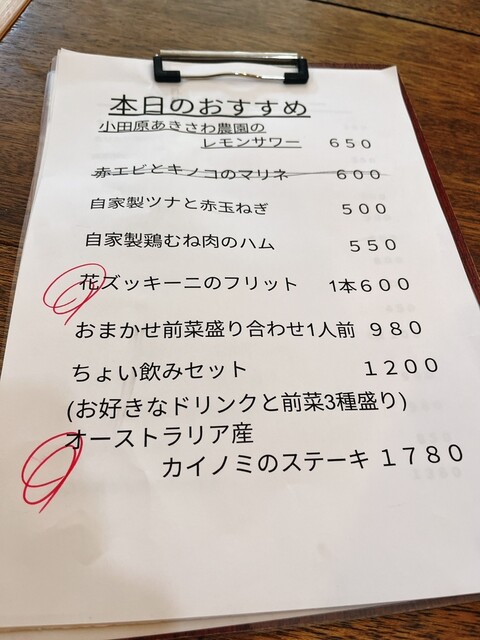 本日のおすすめ
小田原あきさわ農園の
レモンサワー 650
赤エビとキノコのマリネ 600
自家製ツナと赤玉ねぎ 500
自家製鶏むね肉のハム 550
花ズッキーニのフリット 1本600
おまかせ前菜盛り合わせ1人前 980
ちょい飲みセット 1200
(お好きなドリンクと前菜3種盛り)
オーストラリア産
カイノミのステーキ 1780